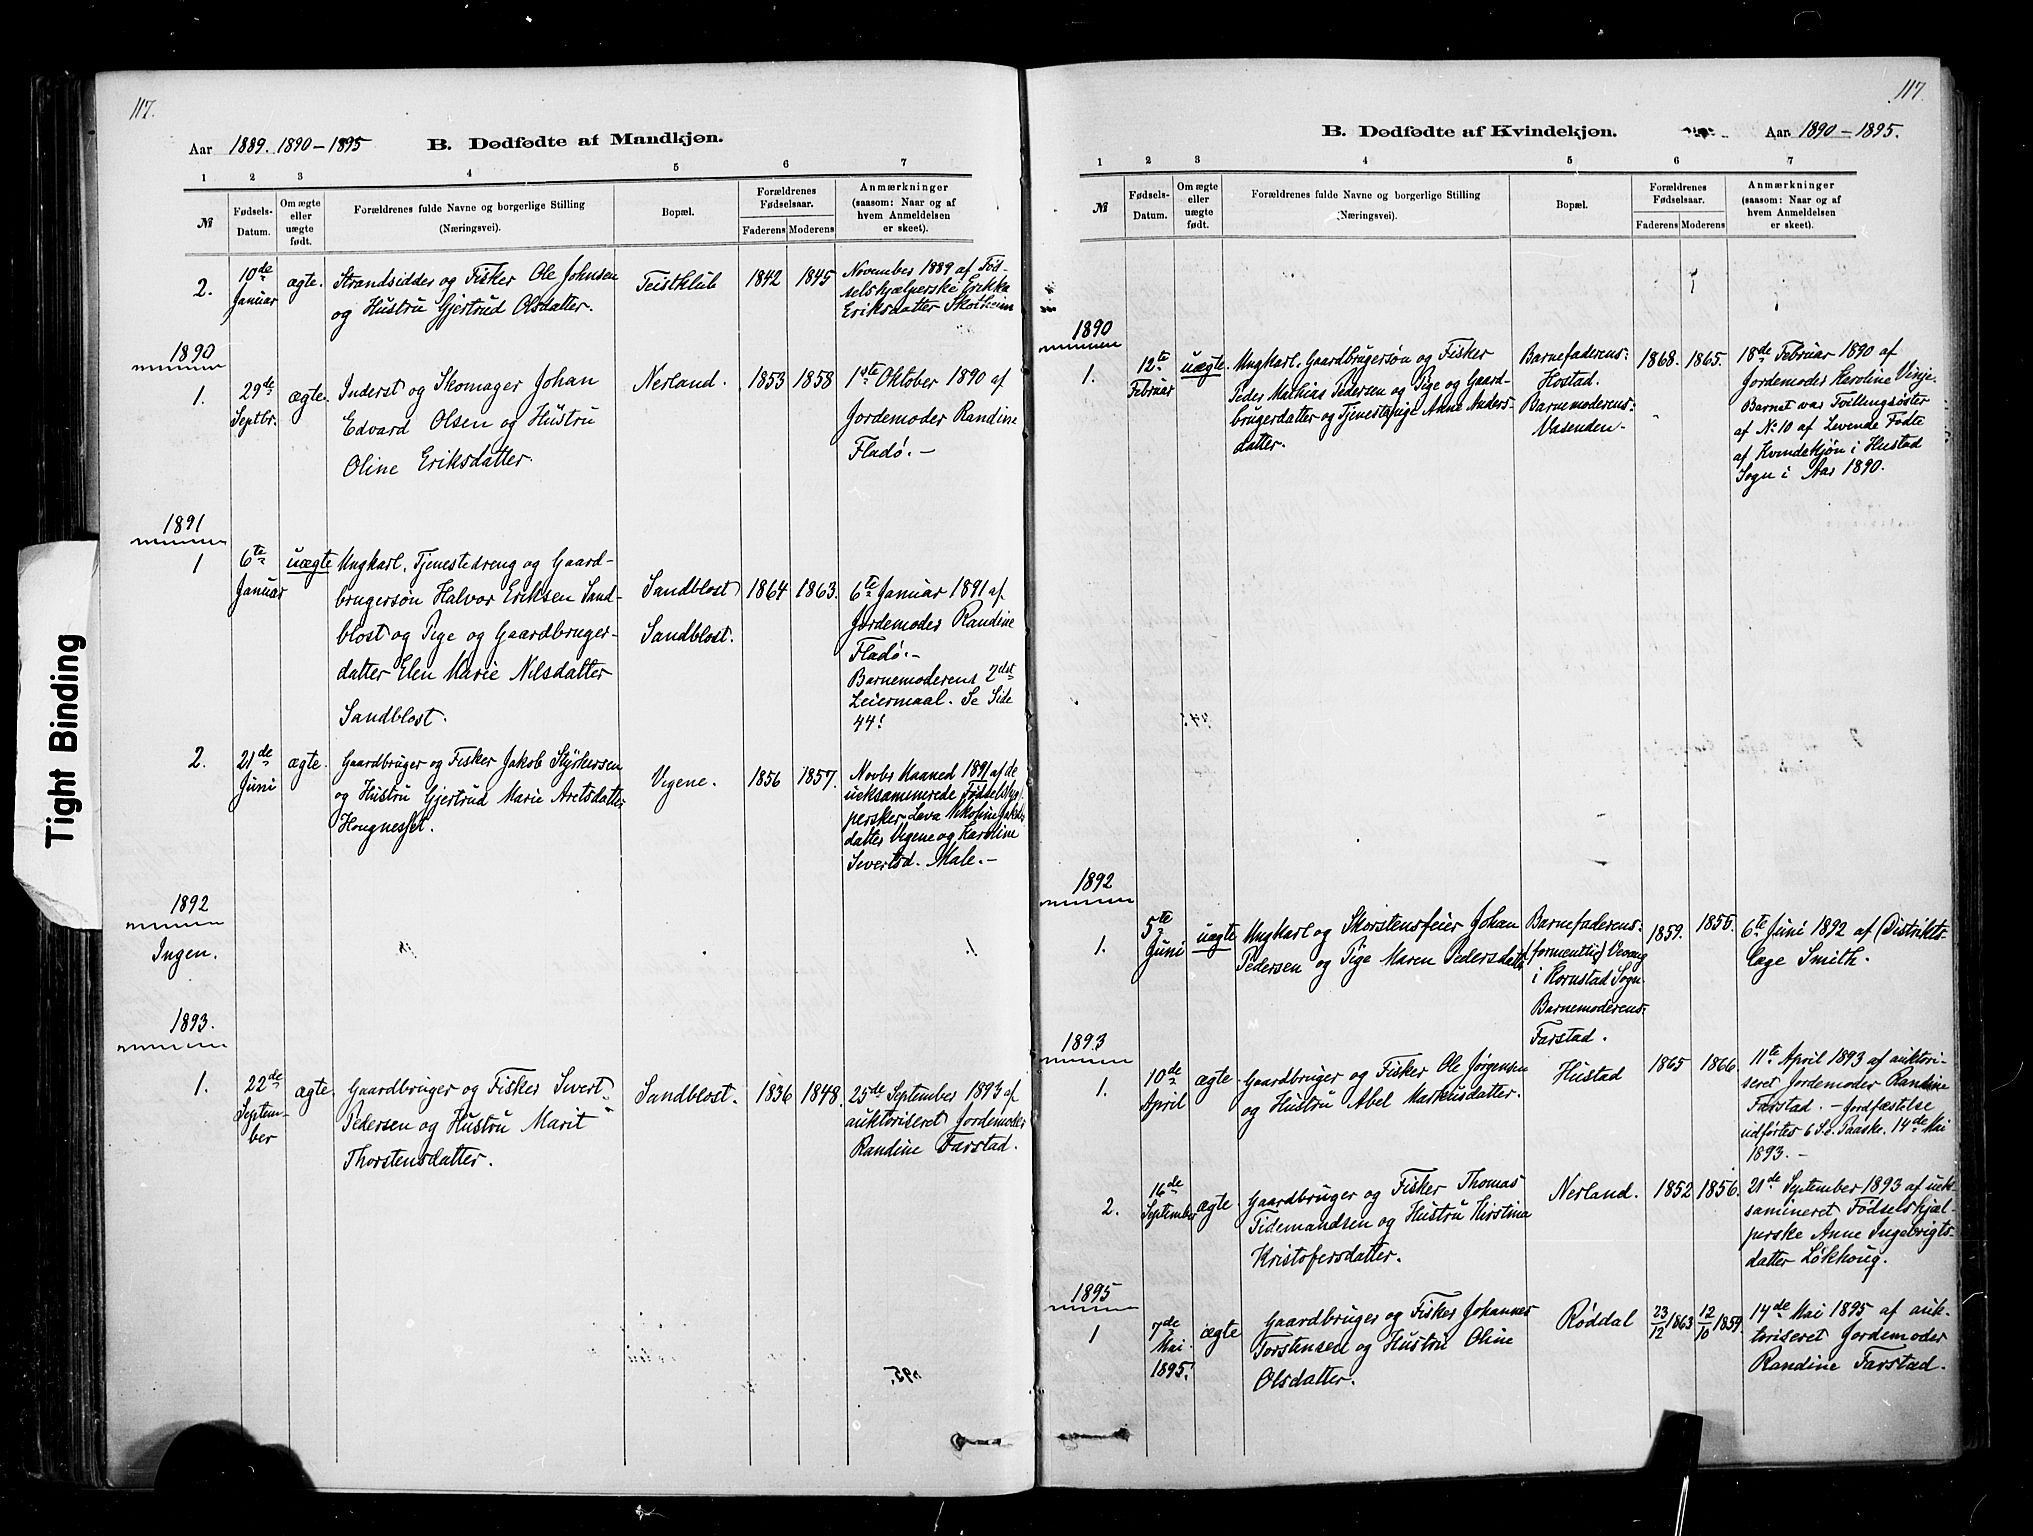 117.
Aar 1889. 1890-1895 B. Dødfødte af Mandkjøn.
1 2 3 4 5 6 7
№
Fødsels-
Datum.
Om ægte
eller
uægte
født.
Forældrenes fulde Navne og borgerlige Stilling
(Næringsvei).
Bopæl.
Forældrenes
Fødselsaar.
Faderens Moderens
Anmærkninger
(saasom: Naar og af
hvem Anmeldelsen
er skeet).
2.
10de
Januar
ægte.
Strandsidder og Fisker Ole Johnsen
og Hustru Gjertrud Olsdatter.
Teistklub
1842 1845
November 1889 af Fød-
selshjælperske Erikka
Eriksdatter Skotheim
1890
1.
29de
Septbr.
ægte.
Inderst og Skomager Johan
Edvard Olsen og Hustru
Oline Eriksdatter.
Nerland.
1853 1858
1ste Oktober 1890 af
Jordemoder Randine
Fladø. -
1891
1
6te
Januar
uægte
Ungkarl, Tjenestedreng og Gaard-
brugersøn Halvor Eriksen Sand-
blost og Pige og Gaardbruger-
datter Elen Marie Nilsdatter
Sandblost.
Sandblost
Sandblost.
1864 1863.
6te Januar 1891 af
Jordemoder Randine
Fladø. -
Barnemoderens 2det
Leiermaal. Se Side
44!
2.
21de
Juni
ægte.
Gaardbruger og Fisker Jakob Styrkersen
og Hustru Gjertrud Marie Aretsdatter
Hougnesset.
Vegene.
1856 1857.
Novbr Maaned 1891 af de
ueksaminerede Fødselshjæl-
persker Lava Nikoline Jakobs-
datter Vegene og Karoline
Sivertsd. Male. -
1892
Ingen.
1893.
1.
22de
Septem-
ber
ægte.
Gaardbruger og Fisker Sivert
Pedersen og Hustru Marit
Thorstensdatter.
Sandblost.
1836 1848.
25de September 1893 af
auktoriseret Jordemoder
Randine Farstad.
117.
B. Dødfødte af Kvindekjøn. Aar 1890-1895.
1 2 3 4 5 6 7
№
Fødsels-
Datum.
Om ægte
eller
uægte
født.
Forældrenes fulde Navne og borgerlige Stilling
(Næringsvei).
Bopæl.
Forældrenes
Fødselsaar.
Faderens Moderens
Anmærkninger
(saasom: Naar og af
hvem Anmeldelsen
er skeet).
1890
1.
12te
Februar
uægte.
Ungkarl, Gaardbrugersøn og Fisker
Peder Mathias Pedersen og Pige og Gaard-
brugerdatter og Tjenestepige Anne Anders-
datter.
Barnefaderens:
Hostad.
Barnemoderens:
Vasenden.
1868. 1865.
18de Februar 1890 af
Jordemoder Karoline Vinje.
Barnet var Tvillingsøster
af No 10 af Levende Fødte
af Kvindekjøn i Hustad
Sogn i Aar 1890.
1892
1.
5te
Juni
uægte
Ungkarl og Skorstensfeier Johan
Pedersen og Pige Maren Pedersdatter
Barnefaderens:
(formentlig) Vevang
i Kornstad Sogn
Barnemoderens:
Farstad.
1859. 1856.
6te Juni 1892 af Distrikts-
læge Smith.
1893
1.
10de
April
ægte.
Gaardbruger og Fisker Ole Jørgensen
og Hustru Abel Markusdatter.
Hustad
1865 1866.
11te April 1893 af auktori-
seret Jordemoder Randine
Farstad. - Jordfæstelse
udførtes 6 S. e. Paaske. 14de Mai
1893. -
2.
16de
September
ægte
Gaardbruger og Fisker Thomas
Tidemandsen og Hustru Kirstina
Kristofersdatter.
Nerland.
1852 1856.
21de September 1893 af uek-
samineret Fødselshjæl-
perske Anne Ingebrigts-
datter Løkhoug.
1895
1
7de
Mai
1895.
ægte
Gaardbruger og Fisker Johannes
Torstensen og Hustru Oline
Olsdatter.
Røddal
23/12 1863 12/10 1859.
14de Mai 1895 af auk-
toriseret Jordemoder
Randine Farstad.
Tight Binding